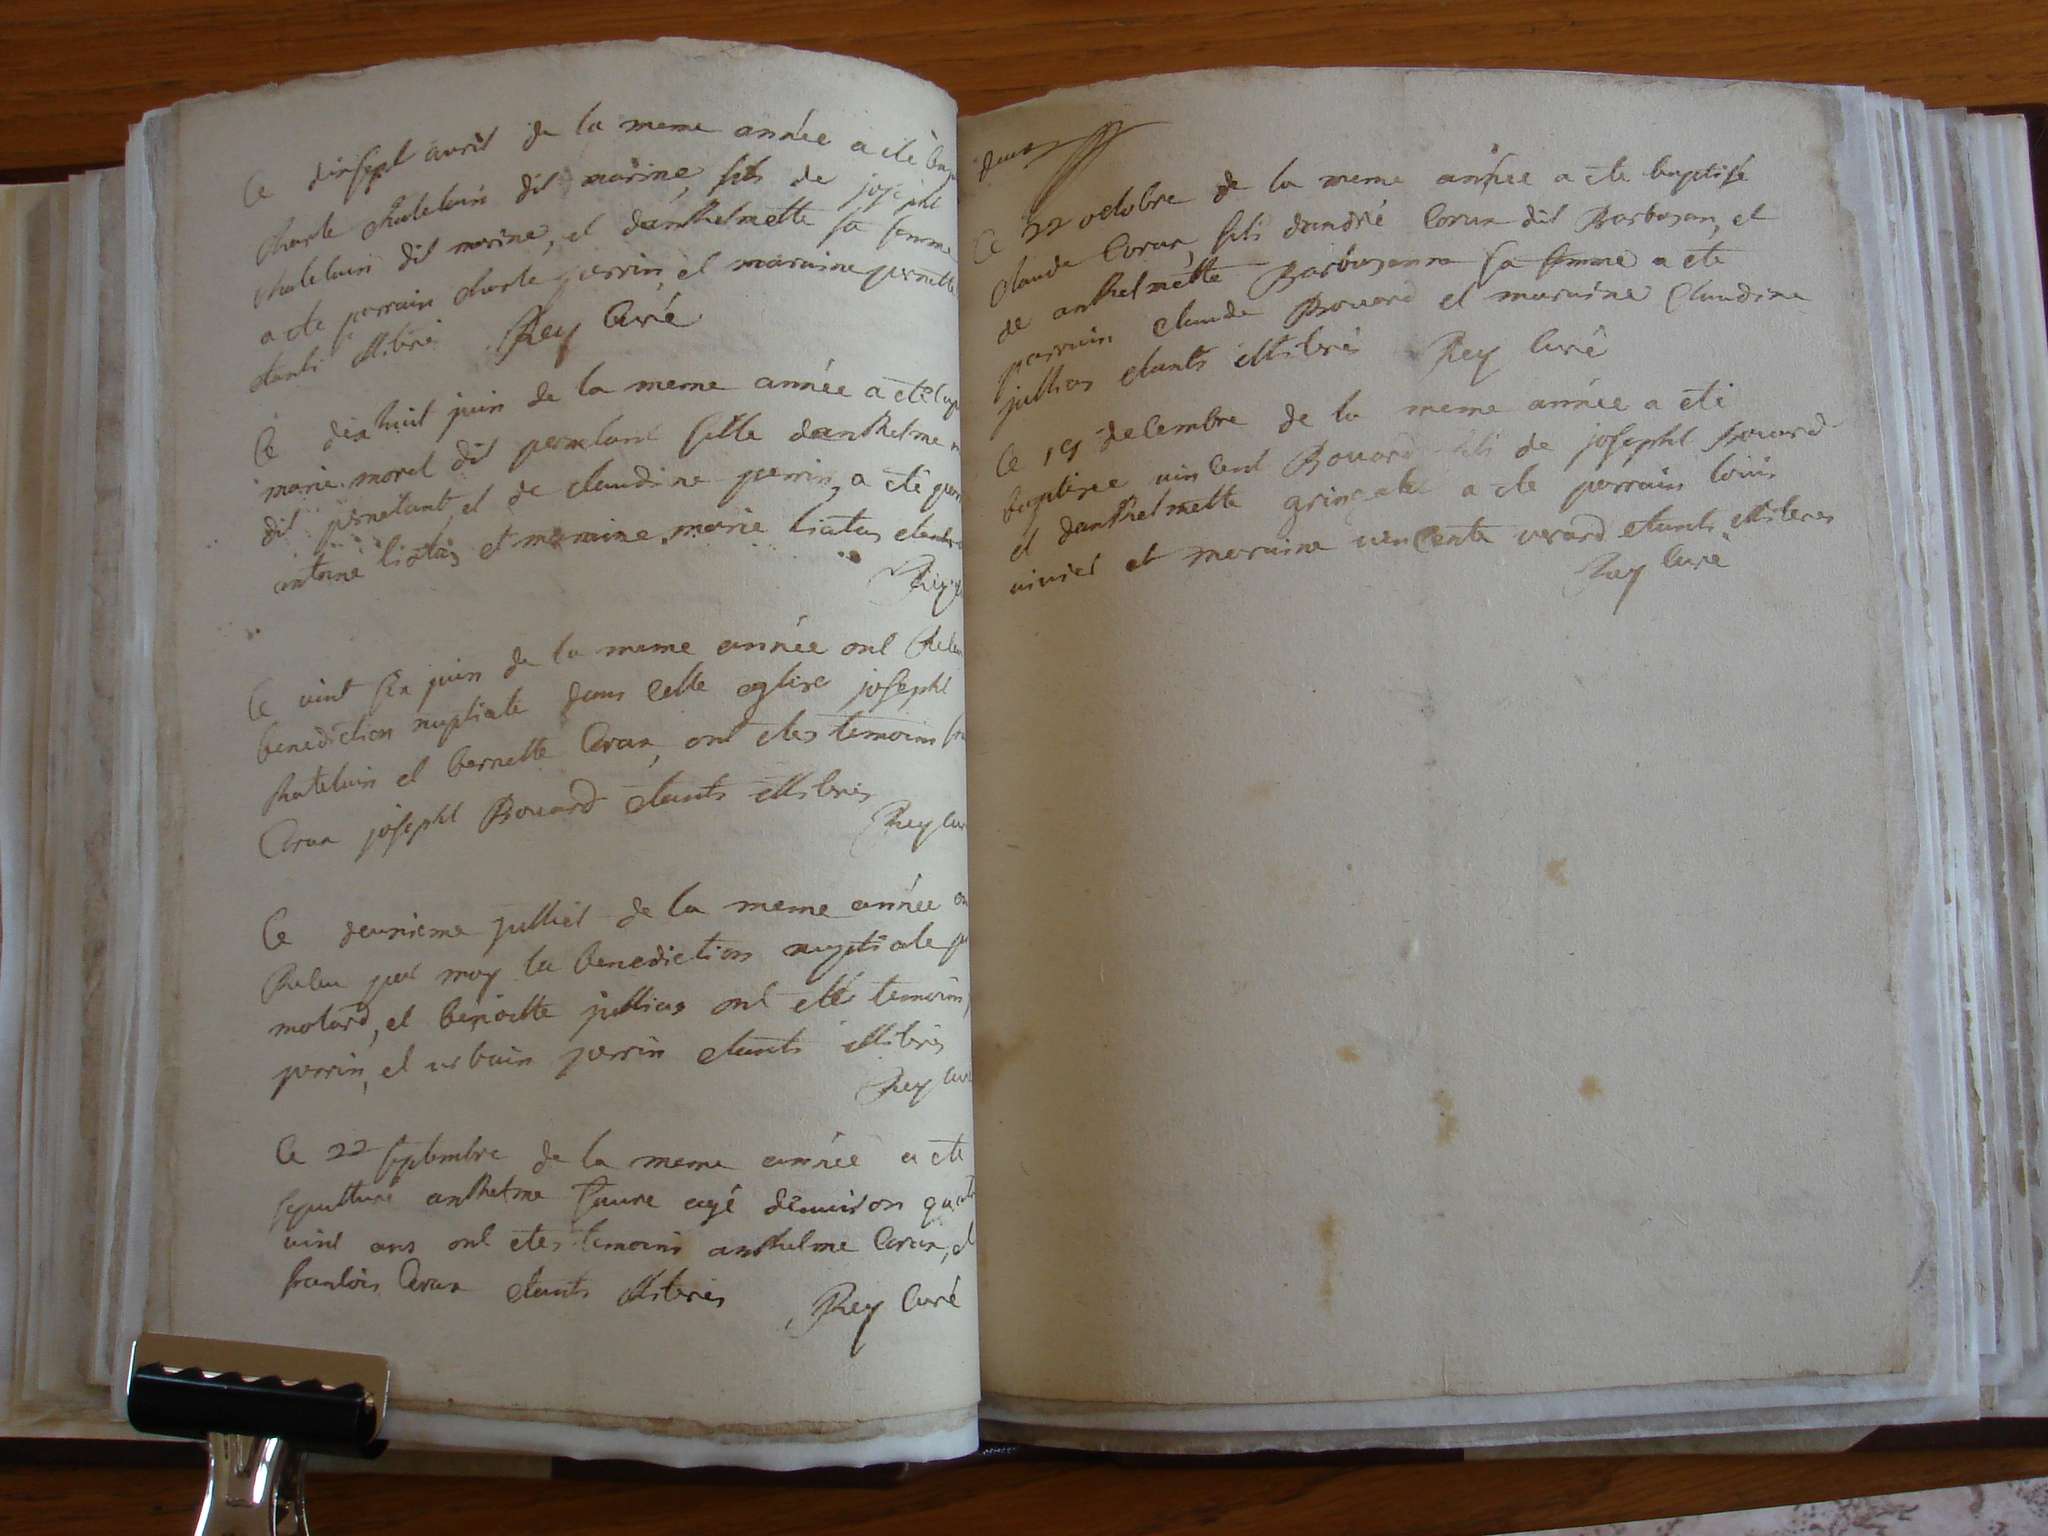 Ce dixsept avril de la meme année a eté bap
charle chatelain dit marine, fils de joseph
chatelain dit marine, et danthelmette sa femme
a ete perrain charle perrin, et maraine pernette
etants illiteré Rey Curé
Ce dix huit juin de la meme année a eté bap
marie morel dit pernetant fille danthelme
dit pernetant, et de claudine perrin, a eté
antoine liatas et maraine marie liatas etants
Rey
Ce vint six juin de la meme année ont Reçu
benediction nuptiale dans cette eglise joseph
Chatelain et bernette Corax, ont etes temoins
Corax joseph Bouard etants illiteres
Rey Cur
Ce deuxieme julliet de la meme année on
Reçu par moy la benediction nuptiale
molard, et benoitte jullias ont etés temoins
perrin, et urbain perrin etants illiteres
Rey Cur
Ce 22 septembre de la meme année a ete
sepulture anthelme faure agé denviron quatre
vint ans ont etes temoins anthelme Corax, et
francois Corax etants illiteres Rey Curé
deux
Ce 22 octobre de la meme année a ete baptisé
claude Corax, fils dandré Corax dit Barbasan, et
de anthelmette Barbasanne sa femme a ete
parrain claude Bouard et maraine Claudine
jullias etants illiteres Rey Curé
Ce 19 decembre de la meme année a eté
baptisee vincent Bouard fils de joseph bouard
et danthelmette a ete perrain louis
viviet et maraine vincente verard etants illiteres
Rey Curé